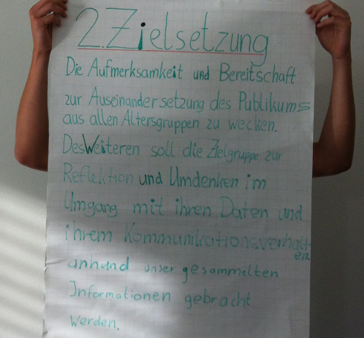 2. Zielsetzung
Die Aufmerksamkeit und Bereitschaft
zur Auseinandersetzung des Publikums
aus allen Altersgruppen zu wecken.
DesWeiteren soll die Zielgruppe zur
Reflektion und Umdenken im
Umgang mit ihren Daten und
ihrem Kommunikationsverhalt-
en
anhand unser gesammelten
Informationen gebracht
werden.